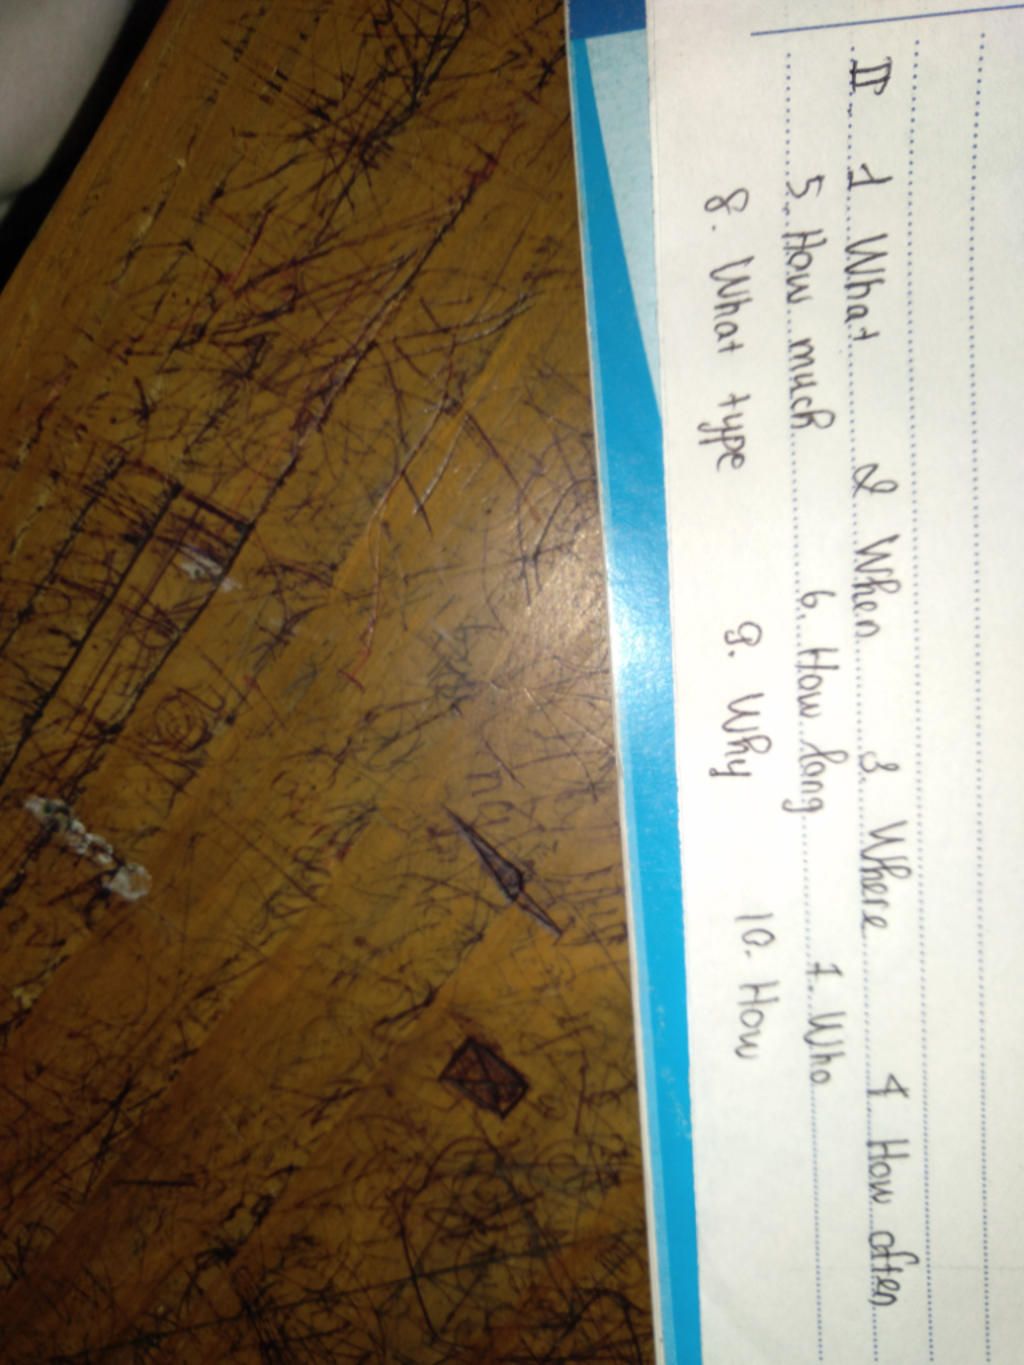 II 1 What 2 When 3. Where 4 How often
5. How much 6. How long 7. Who
8. What type 9. Why 10. How